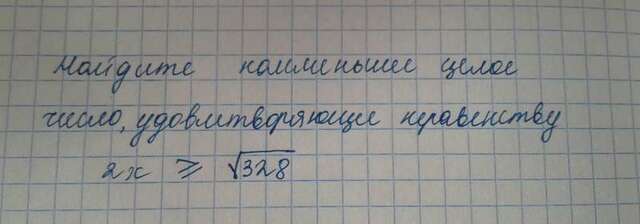 Найдите наименьшее целое
число, удовлетворяющее неравенству
2x ⩾ √328